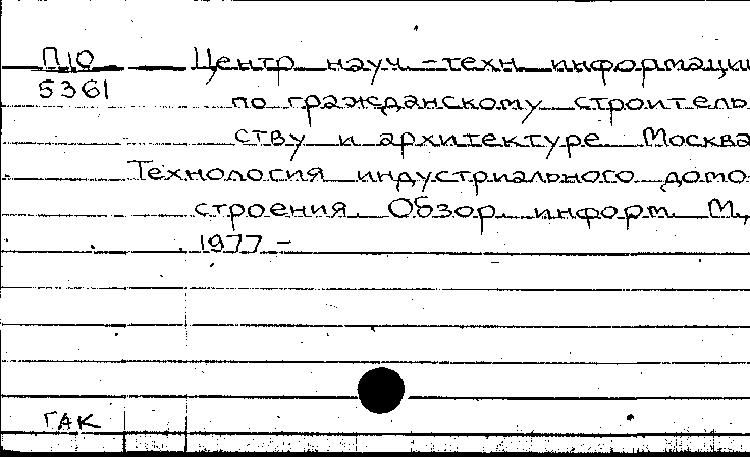 П10 Центр науч.-техн. информации
5361
по гражданскому строитель
ству и архитектуре. Москва
Технология индустриального домо
строения. Обзор. информ. М.,
1977 -
ГАК